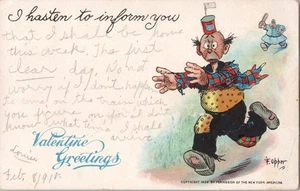 I hasten to inform you
that I shall be home
this week. The first
clear day. Do not
worry if I don't happen
to come on the train which
you figure on for I don't
know what time I shall
arrive
Valentine
Greetings
Louise
Feb. 8/9/10
F. Opper
COPYRIGHT BY PERMISSION OF THE NEW YORK AMERICAN